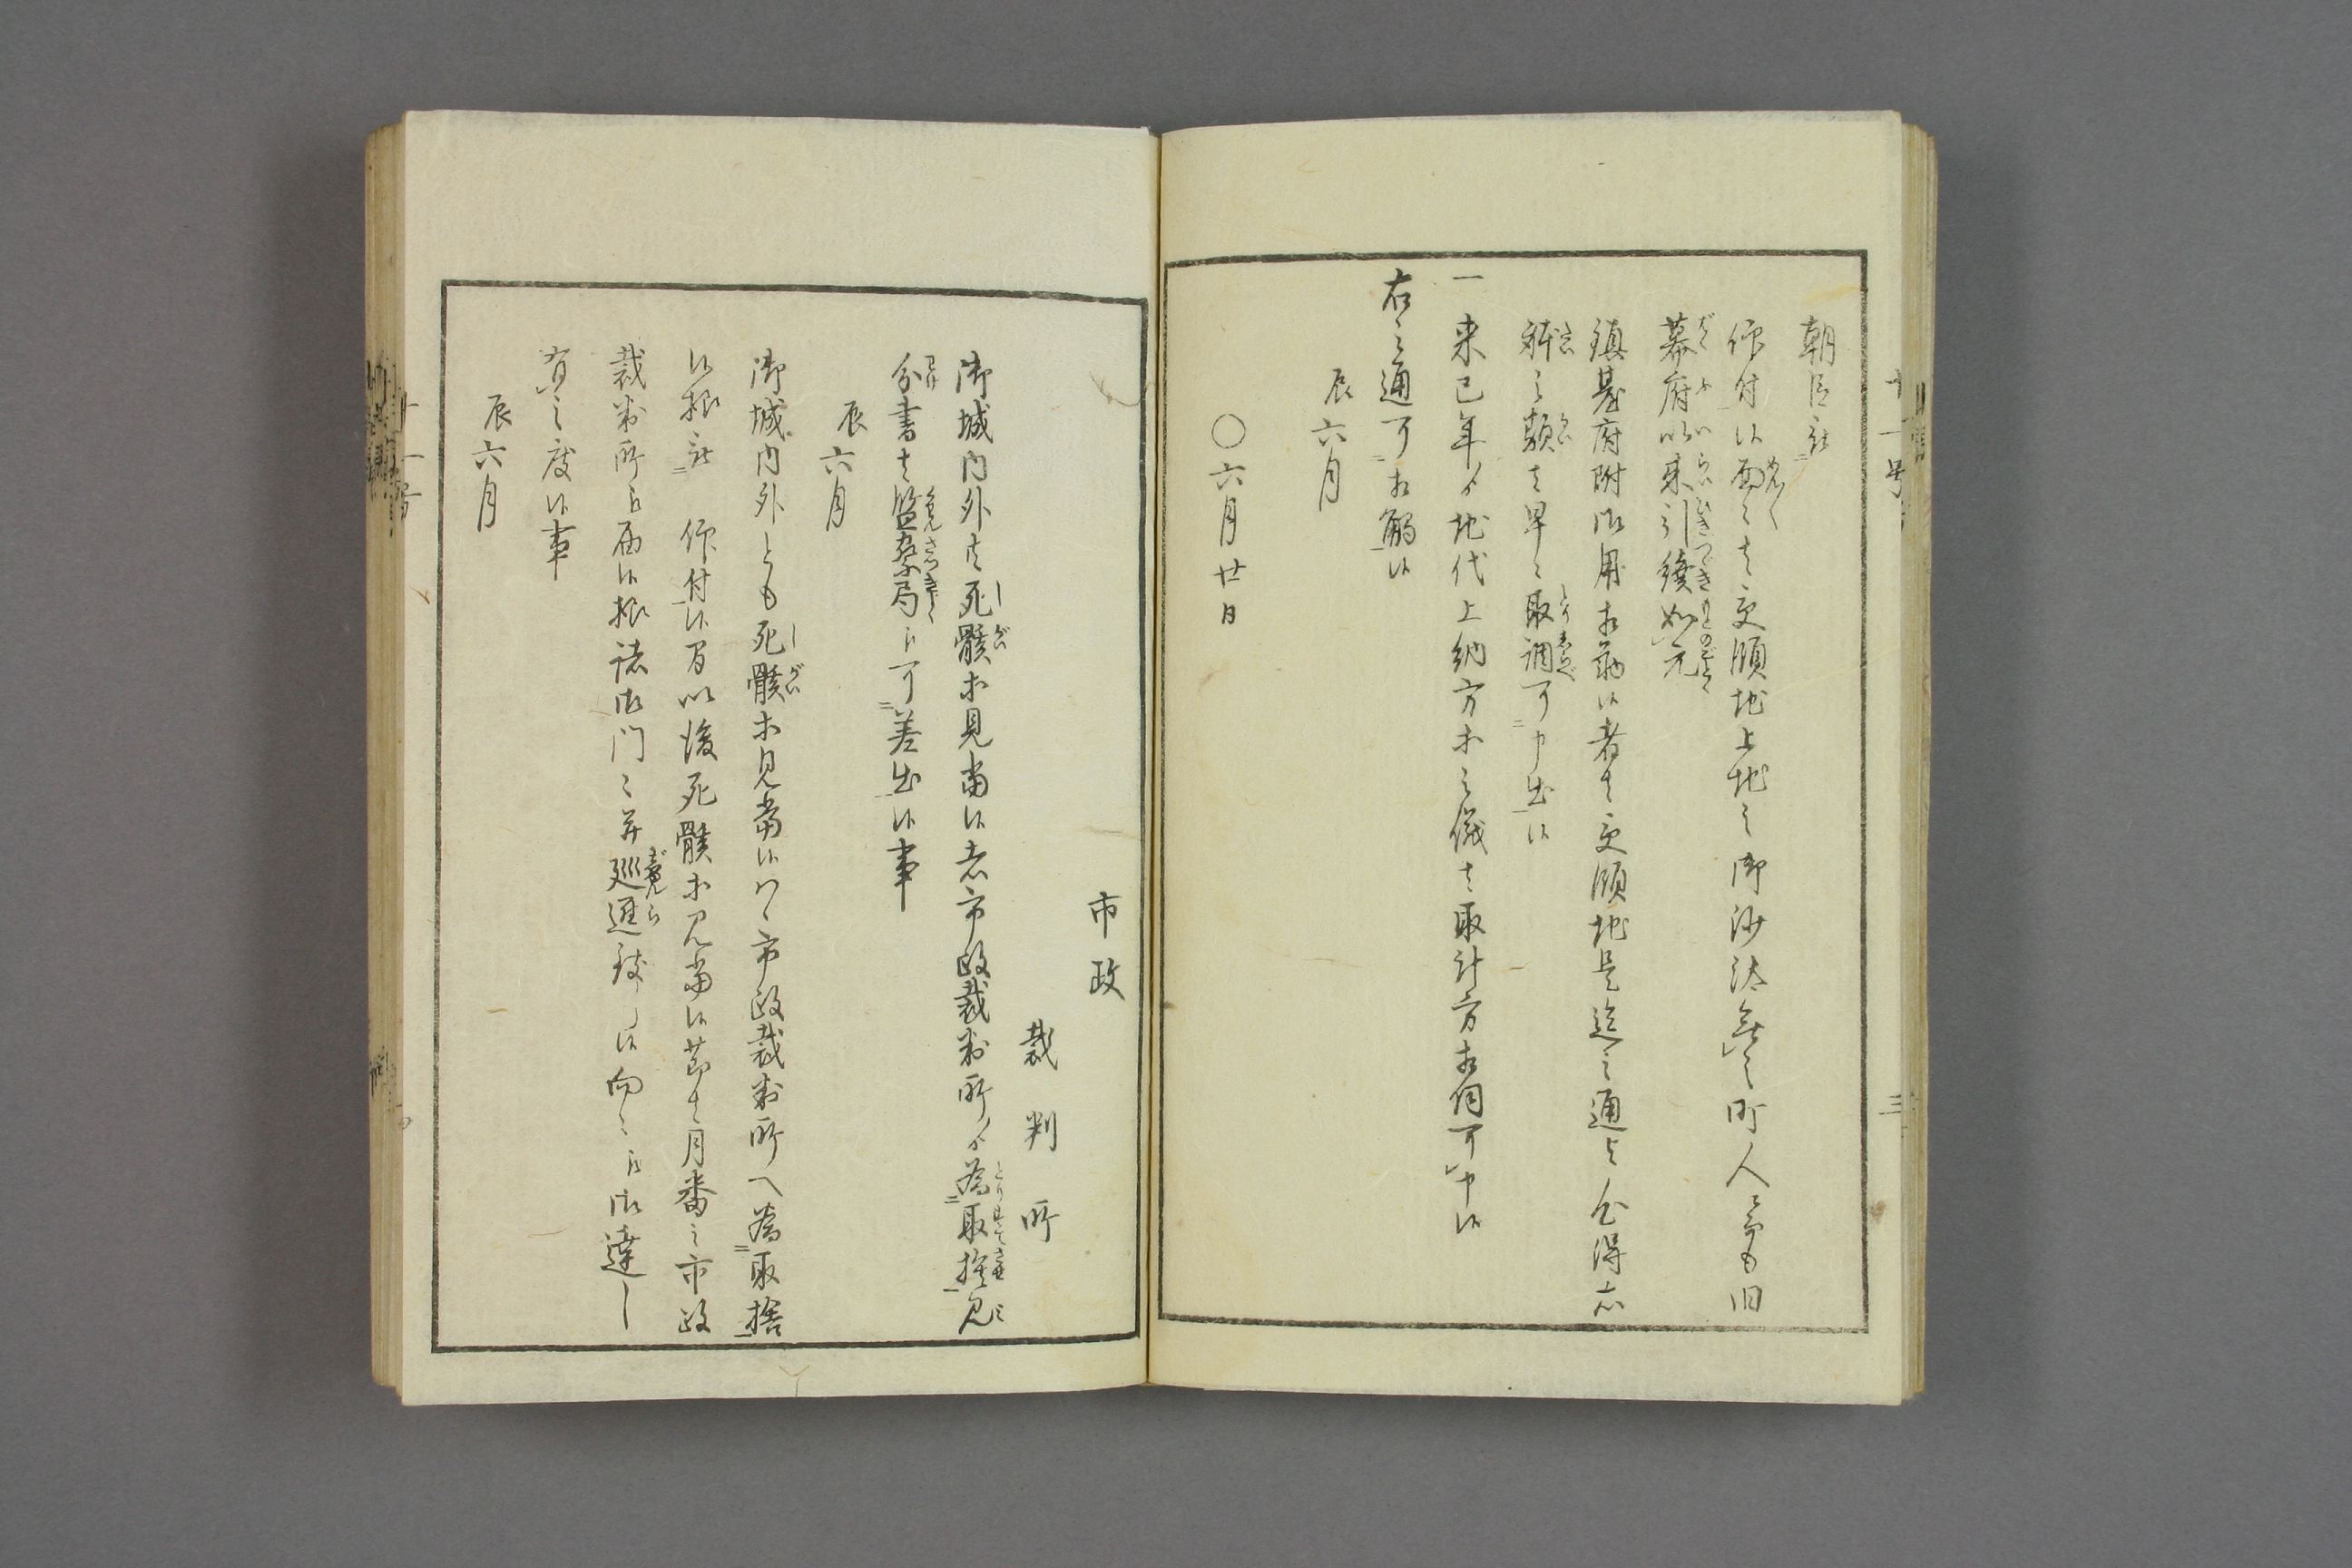 朝臣被
仰付候面々者受領地上地之御沙汰無之町人ニ而も旧
幕府以来引続如元
鎮台府附御用相勤候者者受領地是迄之通与心得右
躰之類者早々取調可申出候
一来巳年ゟ地代上納方等之儀者取計方相伺可申候
右之通可相触候
辰六月
○六月廿日
市政
裁判所
御城内外ニ而死骸等見当候者市政裁判所ゟ為取捨見
分書者監察局江可差出候事
辰六月
御城内外とも死骸等見当候ハヽ市政裁判所へ為取捨
候様被 仰付候間以後死骸等見当候節者月番之市政
裁判所江届候様諸御門々并廻邏致し候向々江御達し
有之度候事
辰六月
十一号
三